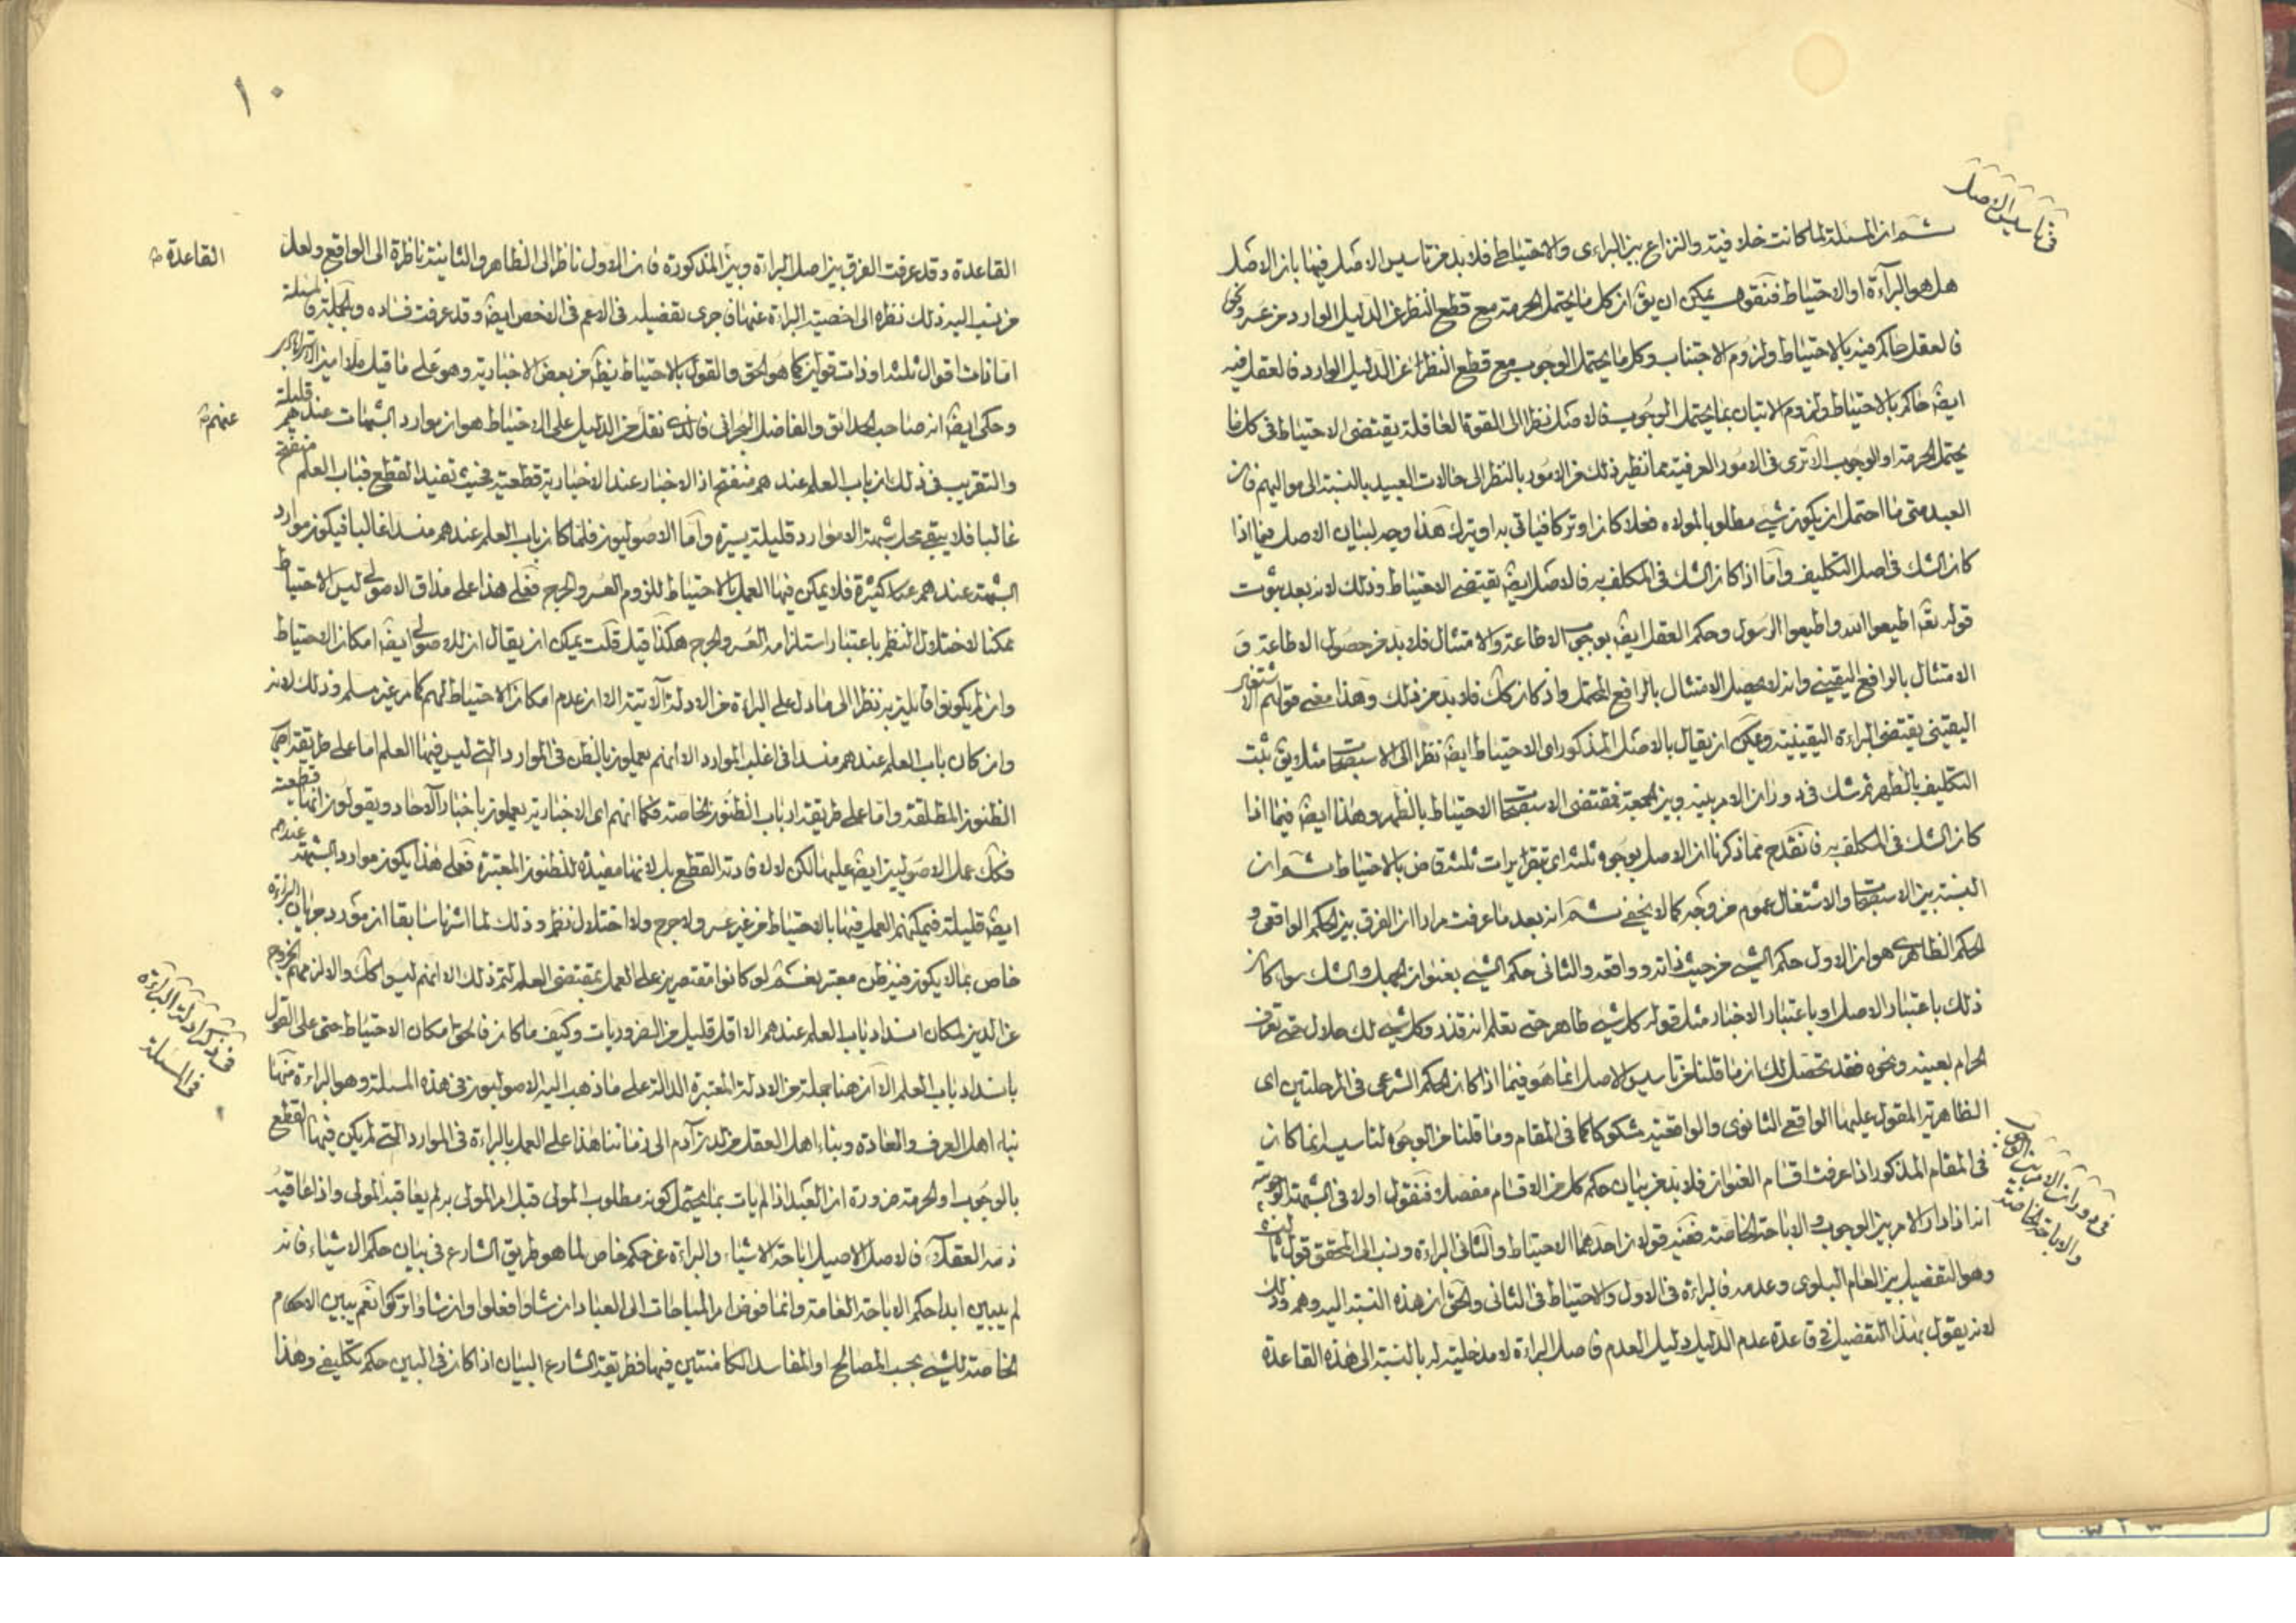 في تاسيس الاصل
ثم ان المسئلة لما كانت خلافية والنزاع بين البراءى والاحتياط فلابد من تاسيس الاصل فيها بان الاصل
هل هو البرآءة او الاحتياط فنقول يمكن ان يق ان كل ما يحتمل الحرمة مع قطع النظر عن الدليل الوارد من
فالعقل حاكم فيه بالاحتياط ولزوم الاجتناب وكل ما يحتمل الوجوب مع قطع النظر عن الدليل الوارد فالعقل فيه
ايضا حاكم بالاحتياط ولزوم الاتيان بما يحتمل الوجوب فالاصل نظرا الى القوة العاقلة يقتضى الاحتياط فى كل ما
يحتمل الحرمة او الوجوب الاترى فى الامور العرفية مما نظير ذلك من الامور بالنظر الى حالات العبيد بالنسبة الى مواليهم فان
العبد متى ما احتمل ان يكون شئ مطلوبا لمولاه فعلا كان او تركا فياتى به او يترك هذا وجه لبيان الاصل فيما اذا
كان الشك فى اصل التكليف وآما اذا كان الشك فى المكلف به فالاصل ايض يقتضى الاحتياط وذلك لانه بعد ثبوت
قوله تع اطيعوا الله واطيعوا الرسول وحكم العقل ايض بوجوب الاطاعة والامتثال فلابد من حصول الاطاعة و
الامتثال بالرافع اليقينى وانه لا يحصل الامتثال بالرافع المحتمل واذ كان كك فلابد من ذلك وهذا معنى قولهم الاشتغال
اليقينى يقتضى البراءة اليقينية ويمكن ان يقال بالاصل المذكور اى الاحتياط ايض نظرا الى الاستصحاب مثلا يق ثبت
التكليف بالظهر ثم شك فى دوران الامر بينه وبين الجمعة فمقتضى الاستصحاب الاحتياط بالظهر وهذا ايض فيما اذا
كان الشك فى المكلف به فانقدح مما ذكرنا ان الاصل بوجوه ثلثة اى بتقريرات ثلثة قاض بالاحتياط ثم ان
النسبة بين الاستصحاب والاشتغال عموم من وجه كما لا يخفى ثم انه بعد ما عرفت مرارا ان الفرق بين الحكم الواقعى و
الحكم الظاهرى هو ان الاول حكم الشئ من حيث ذاته وواقعه والثانى حكم الشئ بعنوان الجهل والشك سواء كان
ذلك باعتبار الاصل او باعتبار الاخبار مثل قوله كل شئ طاهر حتى تعلم انه قذر وكل شئ لك حلال حتى تعرف
الحرام بعينه ونحوه فقد تحصل لك ان ما قلنا من تاسيس الاصل انما هو فيما اذا كان الحكم الشرعى فى المرحلتين اى
الظاهرية المقول عليها الواقع الثانوى والواقعية مشكوكا كما فى المقام وما قلنا من الوجوه لتاسيسه انما كان
فى المقام المذكور اذا عرفت اقسام العنوان فلابد من بيان حكم كل من الاقسام مفصلا فنقول اولا فى الشبهة الوجوبية
انه اذا دار الامر بين الوجوب والاباحة الخاصة ففيه قولان احدهما الاحتياط والثانى البراءة ونسب الى المحقق قول ثالث
وهو التفصيل بين العام البلوى وعدمه فالبراءة فى الاول والاحتياط فى الثانى والحق ان هذه النسبة اليه وهم وذلك
لانه يقول بهذا التفصيل فى قاعدة عدم الدليل دليل العدم فاصل البراءة لا مدخلية له بالنسبة الى هذه القاعدة
فى دوران الامر بين الوجوب
والاباحة الخاصة
١٠
القاعدة وقد عرفت الفرق بين اصل البراءة وبين المذكورة فان الاول ناظر الى الظاهر والثانية ناظرة الى الواقع ولعل
القاعدة
من نسب اليه ذلك نظره الى اخصية البراءة عنها فاجرى تفصيله فى الاعم فى الاخص ايض وقد عرفت فساده وبالجملة فالمسئلة
اما ذات اقوال ثلثة او ذات قولين كما هو الحق والقول بالاحتياط يظهر من بعض الاخبارية وهو على ما قيل ملا امين الاسترابادى
وحكى ايض انه صاحب الحدائق والفاضل البحرانى فالذى نقل من الدليل على الاحتياط هو ان موارد الشبهات عندهم قليلة
عنهم
والتقريب فى ذلك ان باب العلم عندهم منفتح اذ الاخبار عند الاخبارية قطعية فحيث تفيد القطع فباب العلم منفتح
غالبا فلا يبقى محل شبهة الا موارد قليلة يسيرة وآما الاصوليون فلما كان باب العلم عندهم منسدا غالبا فيكون موارد
الشبهة عندهم كثيرة فلا يمكن فيها العمل بالاحتياط للزوم العسر والحرج فعلى هذا على مذاق الاصولى ليس الاحتياط
ممكنا لاختلال النظم باعتبار استلزامه العسر والحرج هكذا قيل قلت يمكن ان يقال ان للاصولى ايض امكان الاحتياط
وان لم يكونوا قايلين به نظرا الى ما دل على البراءة من الادلة الآتية الا ان عدم امكان الاحتياط لهم كما مر غير مسلم وذلك لانه
وان كان باب العلم عندهم منسدا فى اغلب الموارد الا انهم يعملون بالظن فى الموارد التى ليس فيها العلم اما على طريقة اصحاب
الظنون المطلقة واما على طريقة ارباب الظنون الخاصة فكما انهم اى الاخبارية يعملون باخبار الآحاد ويقولون انها قطعية
فكك عمل الاصوليين ايض عليها لكن لا لافادته القطع بل لانها مفيدة للظنون المعتبرة فعلى هذا يكون موارد الشبهة عندهم
ايض قليلة فيمكنهم العمل فيها بالاحتياط من غير عسر ولا حرج ولا اختلال نظم وذلك لما اشرنا سابقا ان مورد جريان البراءة
خاص بما لا يكون فيه ظن معتبر نعم لو كانوا مقتصرين على العمل بمقتضى العلم لتم ذلك الا انهم ليسوا كك والا لزمهم الخروج
عن الدين لمكان انسداد باب العلم عندهم الا اقل قليل من الضروريات وكيف ما كان فالحق امكان الاحتياط حتى على القول
بانسداد باب العلم الا ان هنا جملة من الادلة المعتبرة الدالة على ما ذهب اليه الاصوليون فى هذه المسئلة وهو البراءة منها
فى ذكر ادلة البراءة
فى المسئلة
بناء اهل العرف والعادة وبناء اهل العقل من لدن آدم الى زماننا هذا على العمل بالبراءة فى الموارد التى لم يكن فيها القطع
بالوجوب او الحرمة ضرورة ان العبد اذا لم يات بما يحتمل كونه مطلوب المولى قبل امر المولى به لم يعاقبه المولى واذا عاقبه
ذمه العقلاء فالاصل الاصيل اباحة الاشياء والبراءة عن حكم خاص لما هو طريق الشارع فى بيان حكم الاشياء فانه
لم يبين ابدا حكم الاباحة العامة وانما فوض امر المباحات الى العباد ان شاؤا فعلوا وان شاؤا تركوا نعم يبين الاحكام
الخاصة للشئ بحسب المصالح او المفاسد الكامنتين فيها فطريقة الشارع البيان اذا كان فى البين حكم تكليفى وهذا